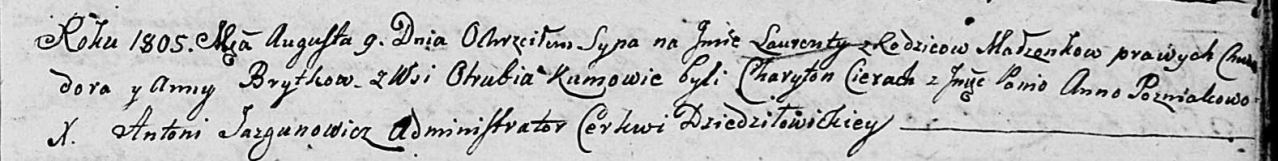 Roku 1805. Mca Augusta 9. Dnia Ochrzciłem Syna na Jmie Laurenty z Rodzicow Małżonkow prawych Chwe
dora y Anny Brytkow. z Wsi Otrubia Kumowie byli Charyton Cierach z Jmć Panio Anno Pozniakowo
X. Antoni Jazgunowicz Administrator Cerkwi Dziedziłowickiey